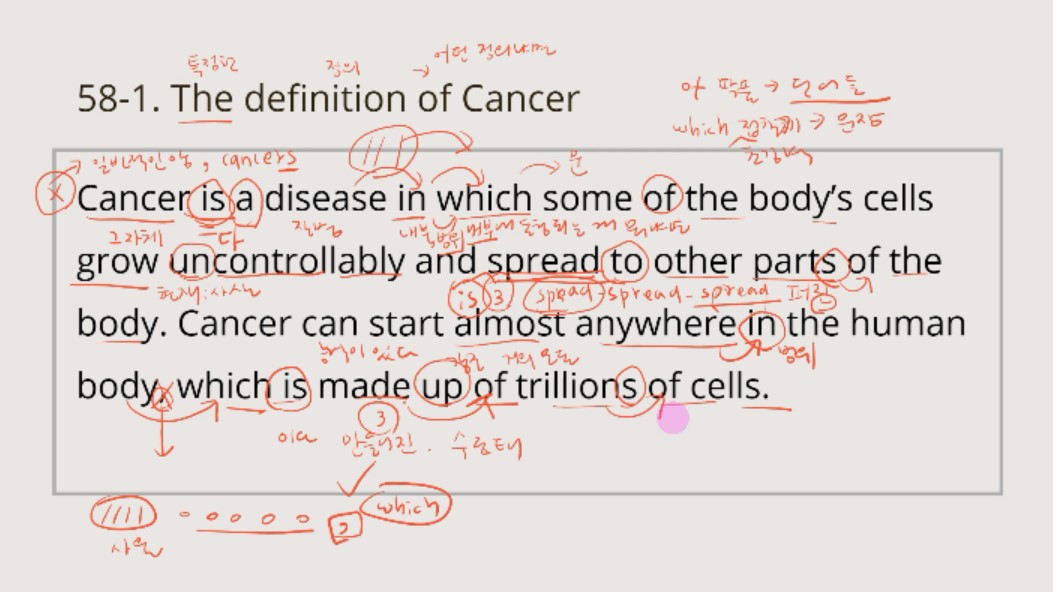 특정한 정의 → 어떤 정의냐면
58-1. The definition of Cancer
아 → 단어들
which → 원자
→ 일반적인 암, cancers
문
X Cancer is a disease in which some of the body's cells
그자체 다 질병 내부 범위
grow uncontrollably and spread to other parts of the
현재:사실 is 3 spread-spread-spread 퍼진
body. Cancer can start almost anywhere in the human
능력이 있다 강조 거의 모든 범위
body, which is made up of trillions of cells.
3
이다 만들어진. 수동태
//// o o o o o , which
사물